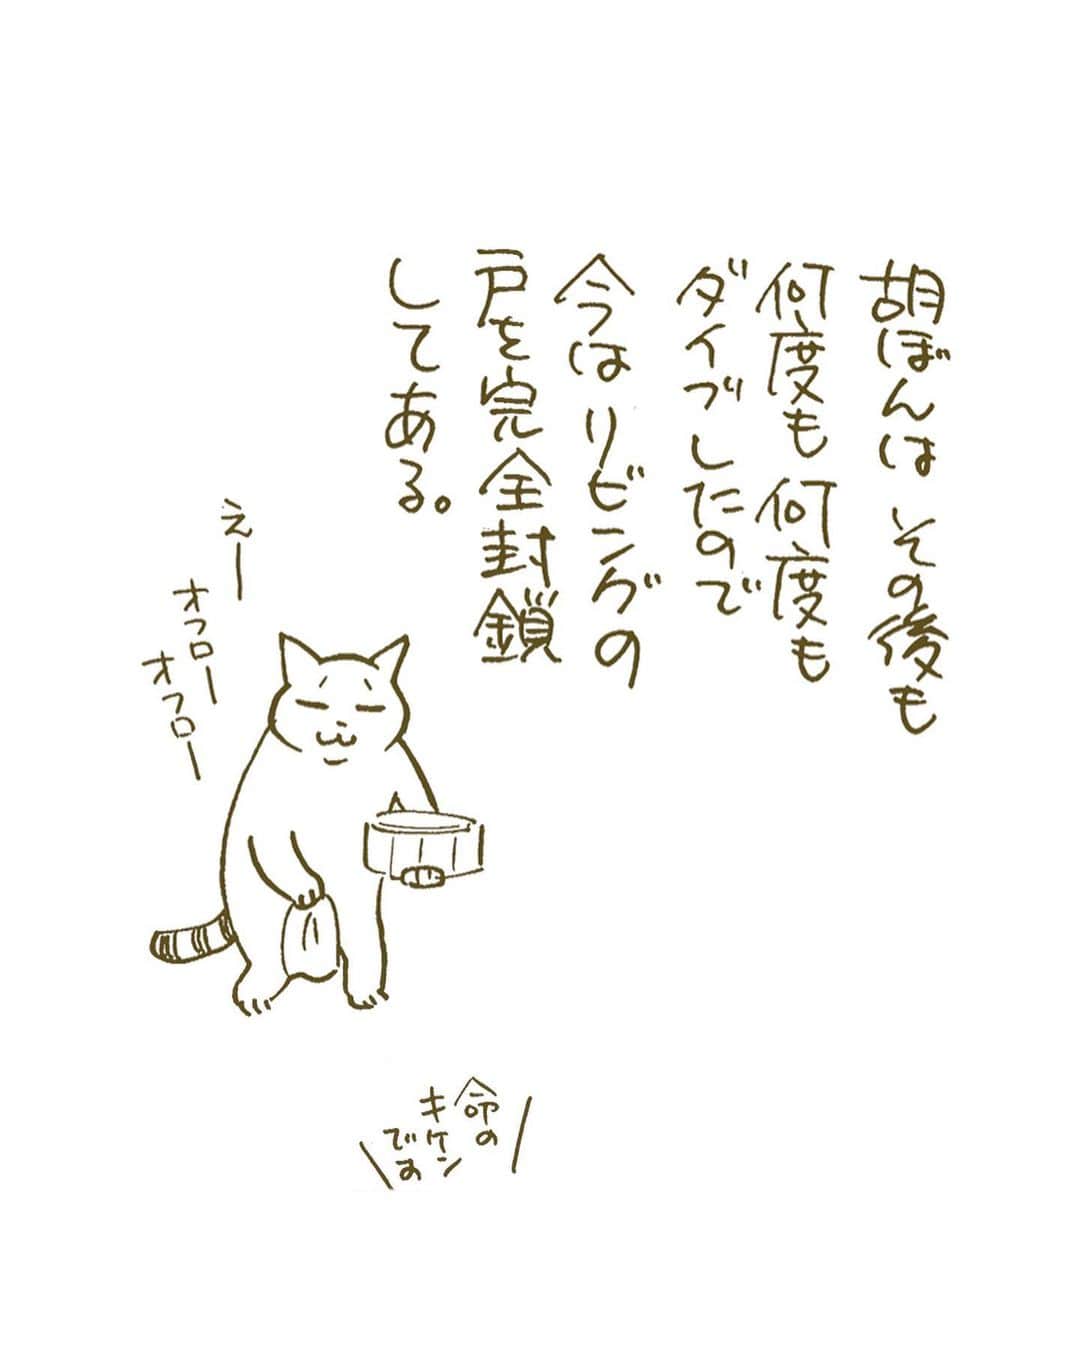 胡ぼんは その後も
何度も 何度も
ダイブしたので
今は リビングの
戸を完全封鎖
してある。
えー
オフロー
オフロー
命の
キケン
です